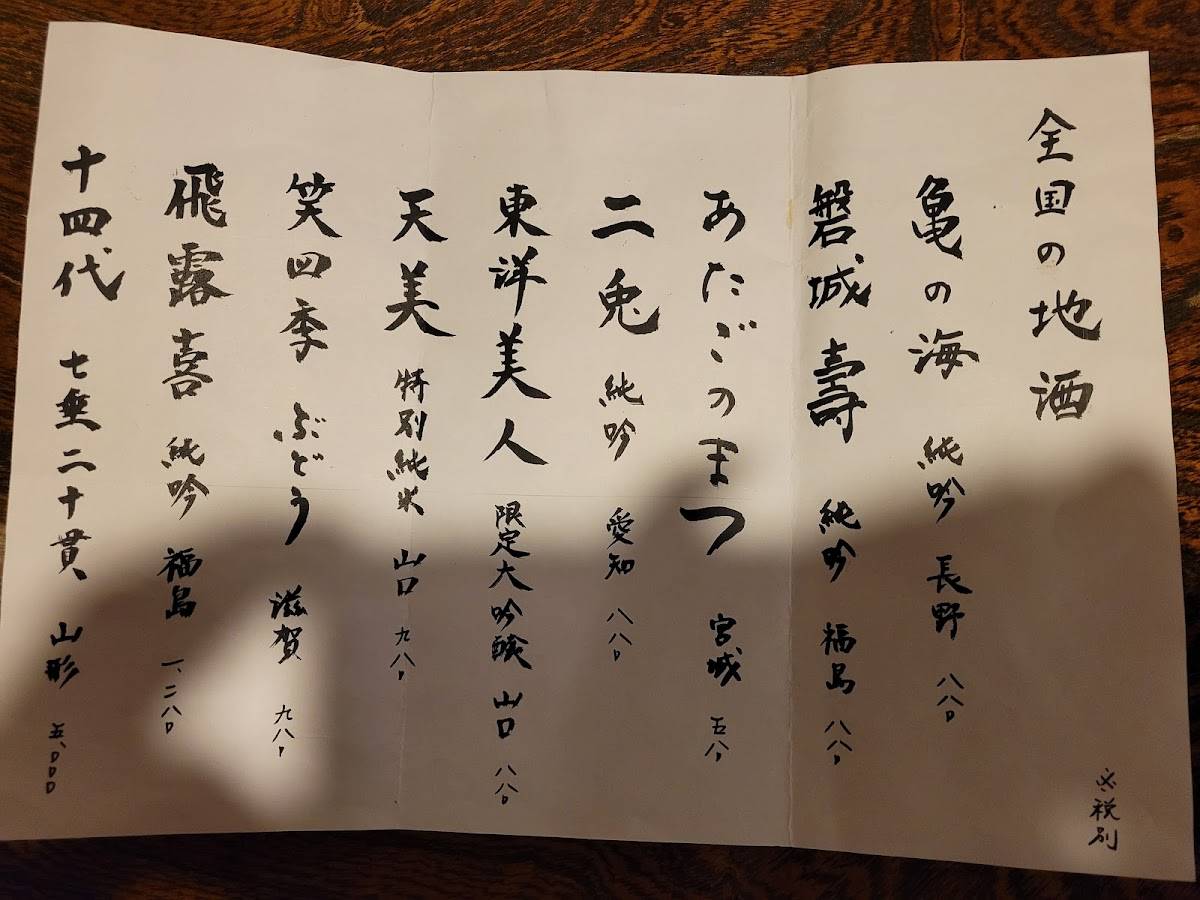 全国の地酒
亀の海 純吟 長野 八八〇
磐城壽 純吟 福島 八八〇
あたごのまつ 宮城 五八〇
二兎 純吟 愛知 八八〇
東洋美人 限定大吟醸 山口 八八〇
天美 特別純米 山口 九八〇
笑四季 ぶどう 滋賀 九八〇
飛露喜 純吟 福島 一、二八〇
十四代 七垂二十貫 山形 五、〇〇〇
※税別